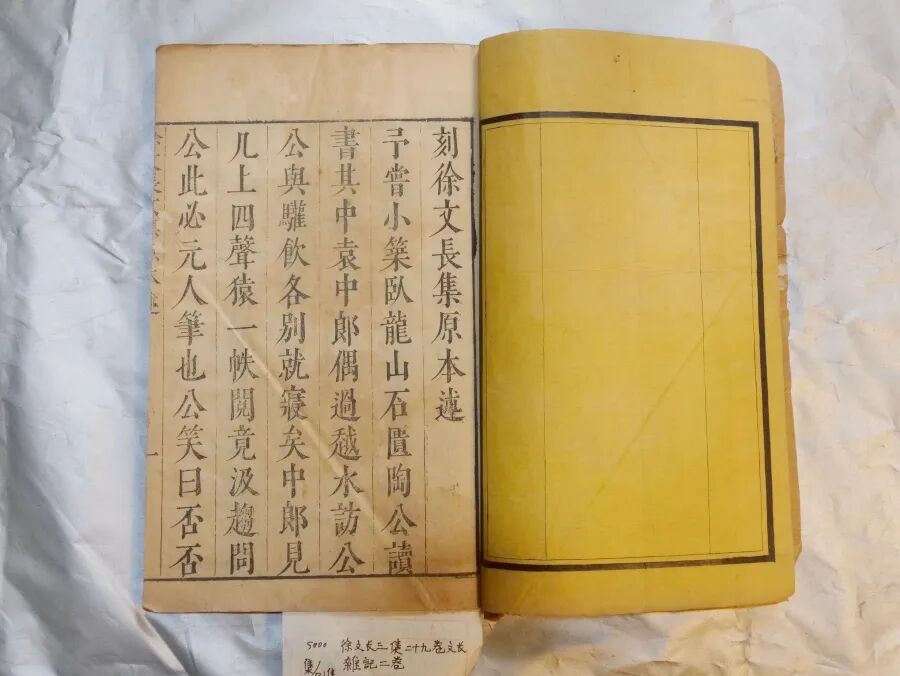 刻徐文長集原本述
予嘗小築臥龍山石匱陶公讀
書其中袁中郎偶過越水訪公
公與驩飲各別就寢矣中郎見
几上四聲猿一帙閱竟汲趨問
公此必元人筆也公笑曰否否
一
5000 徐文长三集二十九卷文长
集/别集 雜記二卷